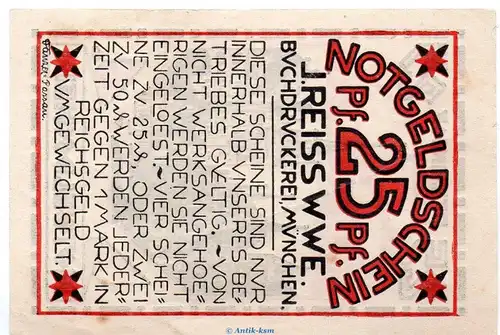 NOTGELDSCHEIN
Pf. 25 Pf.
J. REISS WWE.
BVCHDRVCKEREI, MVNCHEN.
DIESE SCHEINE SIND NVR
INNERHALB VNSERES BE"
TRIEBES GVELTIG. ~ VON
NICHT WERKSANGEHOE"
RIGEN WERDEN SIE NICHT
EINGELOEST ~ VIER SCHEI"
NE ZV 25 ₰ ODER ZWEI
ZV 50 ₰ WERDEN JEDER"
ZEIT GEGEN 1 MARK IN
REICHSGELD
VMGEWECHSELT.
© Antik-ksm